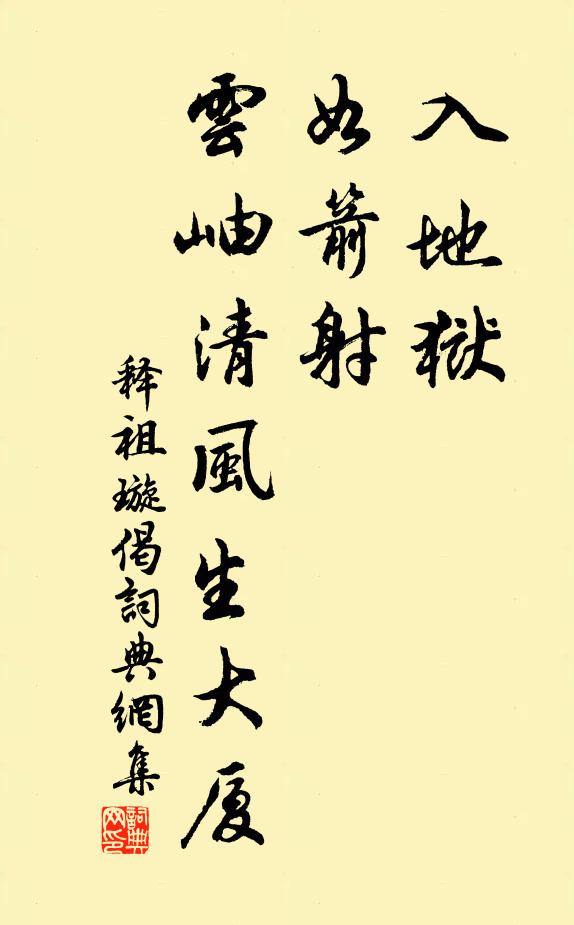 入地獄
如箭射
雲岫清風生大厦
释祖璇偈詞典網集
詞典
网印